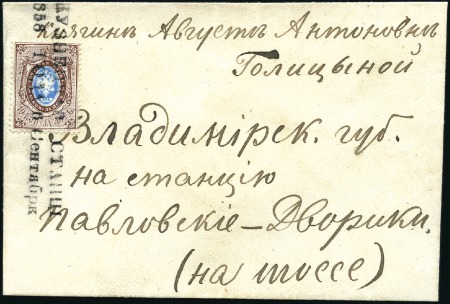 Княгинѣ Августѣ Антоновнѣ
Голицыной
Владимірск. губ.
на станцію
Павловскіе-Дворики.
(на шоссе)
СТАНЦІИ
1858 ГО
Сентября